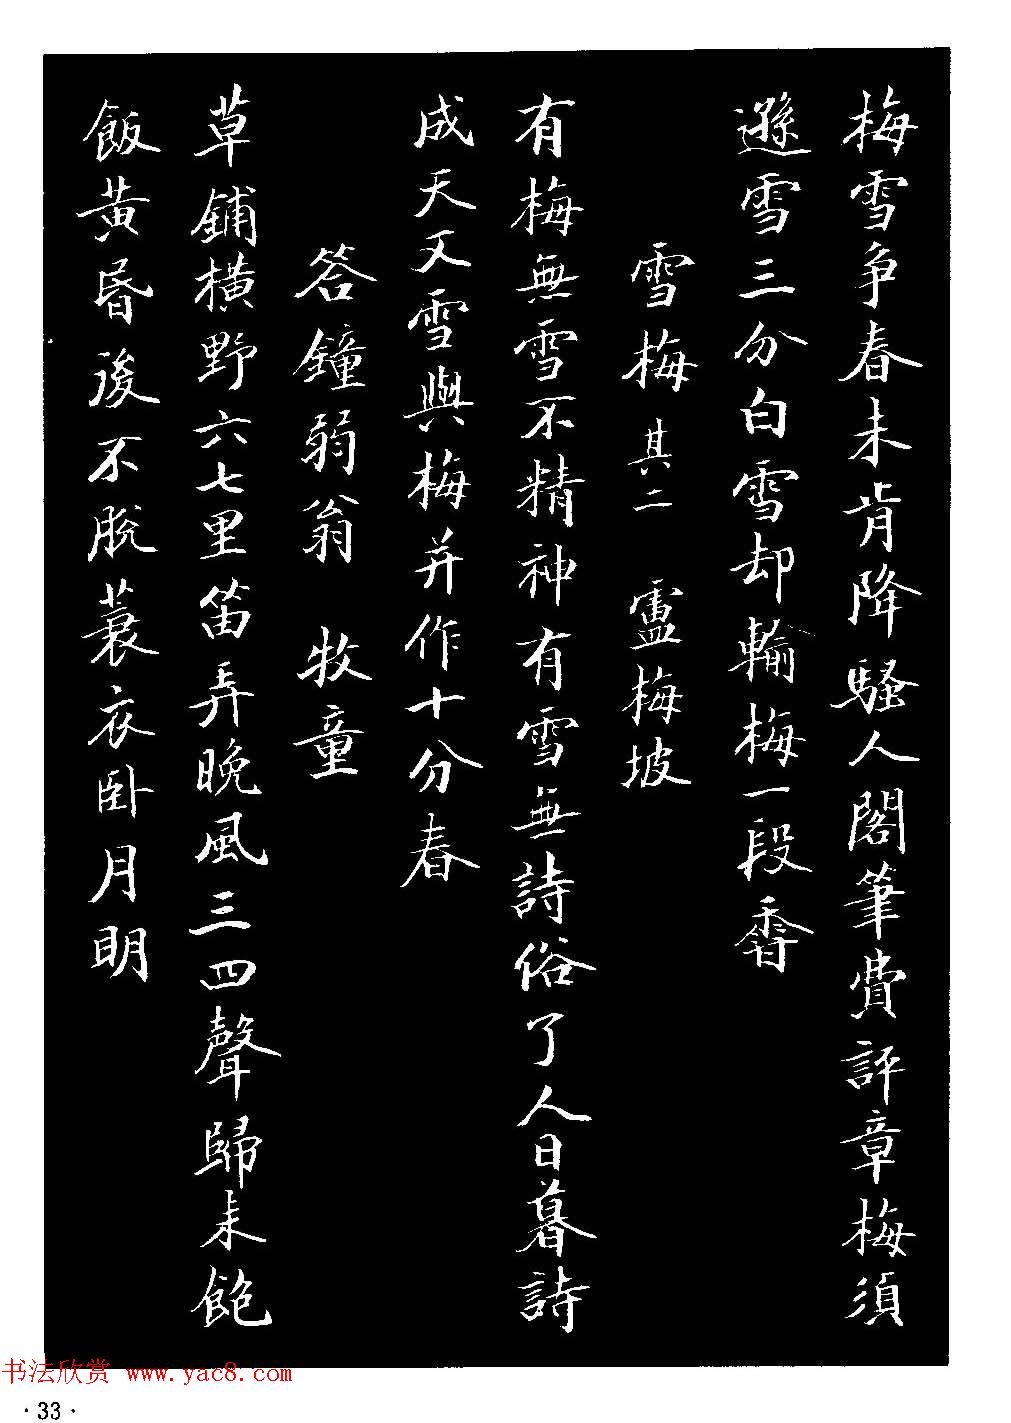 梅雪争春未肯降騷人閣筆費評章梅須
遜雪三分白雪却輸梅一段香
雪梅 其二 盧梅坡
有梅無雪不精神有雪無詩俗了人日暮詩
成天又雪與梅并作十分春
答鐘弱翁 牧童
草鋪橫野六七里笛弄晚風三四聲歸来飽
飯黃昏後不脫蓑衣卧月明
书法欣赏 www.yac8.com
·33·